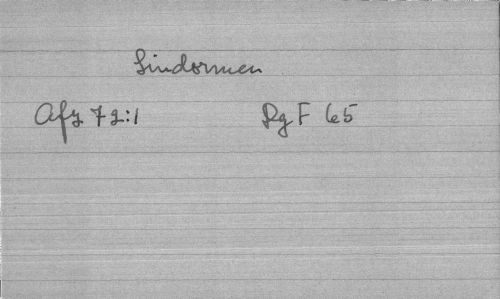 Lindormen
Afz 72:1 DgF 65